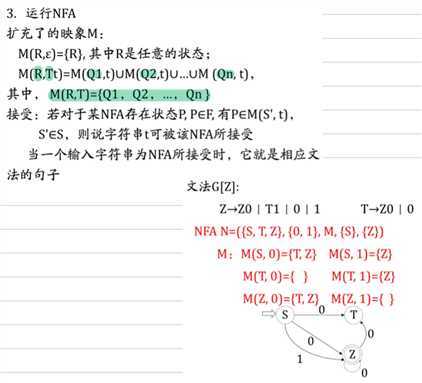 3. 运行NFA
扩充了的映象M:
M(R,ε)={R}, 其中R是任意的状态;
M(R,Tt)=M(Q1,t)∪M(Q2,t)∪…∪M (Qn, t),
其中, M(R,T)={Q1, Q2, …, Qn }
接受: 若对于某NFA存在状态P, P∈F, 有P∈M(S', t),
S'∈S, 则说字符串t可被该NFA所接受
当一个输入字符串为NFA所接受时, 它就是相应文
法的句子
文法G[Z]:
Z→Z0 | T1 | 0 | 1 T→Z0 | 0
NFA N=({S, T, Z}, {0, 1}, M, {S}, {Z})
M: M(S, 0)={T, Z} M(S, 1)={Z}
M(T, 0)={ } M(T, 1)={Z}
M(Z, 0)={T, Z} M(Z, 1)={ }
S 0 T
0 0
1 Z
0